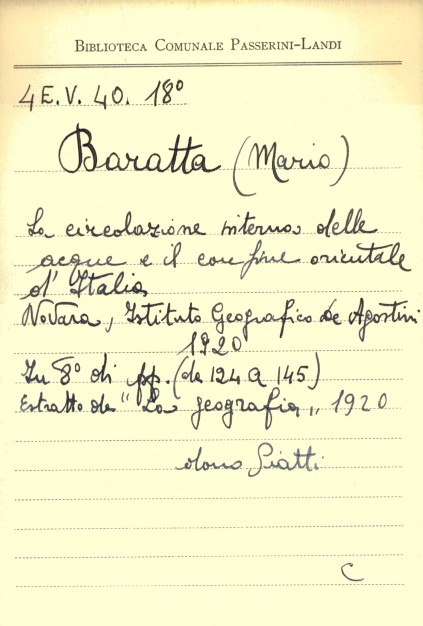 BIBLIOTECA COMUNALE PASSERINI-LANDI
4 E. V. 40. 18°
Baratta (Mario)
La circolazione interna delle
acque e il confine orientale
d'Italia
Novara, Istituto Geografico De Agostini
1920
In 8° di pp. (da 124 a 145)
Estratto da "La geografia„ 1920
dono Giatti
C